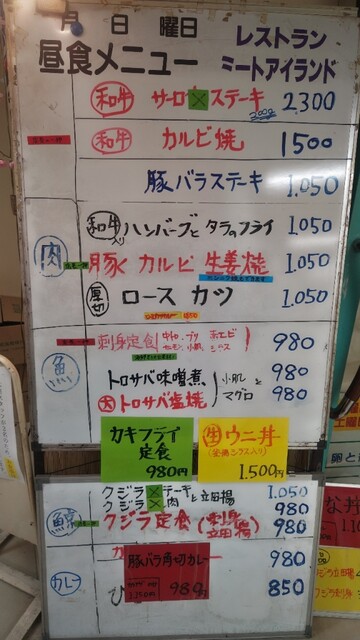 月 日 曜日
レストラン
昼食メニュー
ミートアイランド
和牛 サーロ ステーキ 2300
300g
和牛 カルビ焼 1500
豚バラステーキ 1.050
肉
和牛入り ハンバーグと タラのフライ 1.050
豚 カルビ 生姜焼 1.050
厚切 ロース カツ 1.050
魚
刺身定食 980
トロサバ味噌煮 980
大トロサバ塩焼 980
小肌と マグロ
カキフライ
定食
980円
生ウニ丼
1.500円
鯨
クジラ ステーキ 1.050
クジラ 肉 と立田揚 980
クジラ定食 (刺身 立田揚) 980
カレー
豚バラ角切カレー 980
980円
850